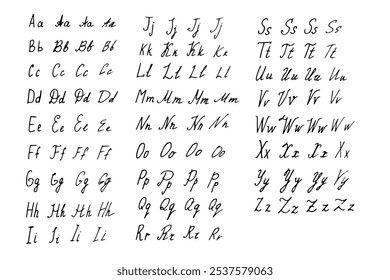 Aa Aa Aa Aa
Bb Bb Bb Bb
Cc Cc Cc Cc
Dd Dd Dd Dd
Ee Ee Ee Ee
Ff Ff Ff Ff
Gg Gg Gg Gg
Hh Hh Hh Hh
Ii Ii Ii Ii
Jj Jj Jj Jj
Kk Kk Kk Kk
Ll Ll Ll Ll
Mm Mm Mm Mm
Nn Nn Nn Nn
Oo Oo Oo Oo
Pp Pp Pp Pp
Qq Qq Qq Qq
Rr Rr Rr Rr
Ss Ss Ss Ss
Tt Tt Tt Tt
Uu Uu Uu Uu
Vv Vv Vv Vv
Ww Ww Ww Ww
Xx Xx Xx Xx
Yy Yy Yy Yy
Zz Zz Zz Zz
shutterstock
IMAGE ID: 2537579063
www.shutterstock.com